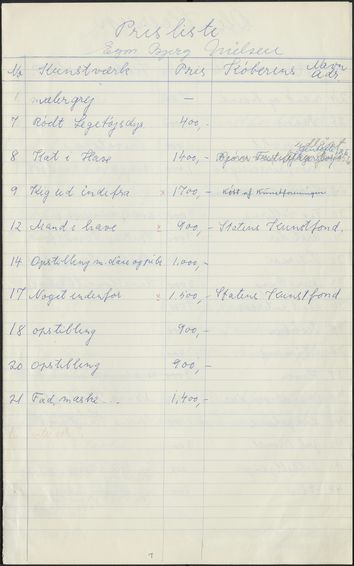 Prisliste
Egon Bjerg Nielsen
Nr. Kunstværk Pris Köberens Navn
Adr.
1 malergrej —
7 Rödt Legetöjsdyr 400,-
8 Kat i Have 1400,-
9 Kig ud indefra x 1700,- Köbt af Kunstforeningen
12 Mand i have x 900,- Statens Kunstfond.
14 Opstilling m. dåse og pibe 1.000,-
17 Noget indenfor x 1.500,- Statens Kunstfond
18 opstilling 900,-
20 Opstilling 900,-
21 Fad, maske 1,400,-